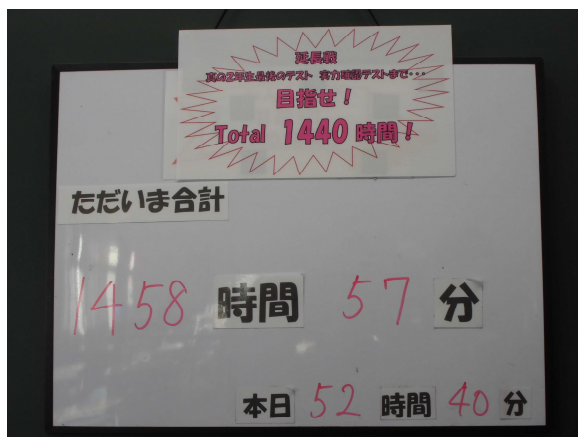 延長戦
真の2年生最後のテスト 実力確認テストまで・・・
目指せ！
Total 1440 時間！
ただいま合計
1458 時間 57 分
本日 52 時間 40 分